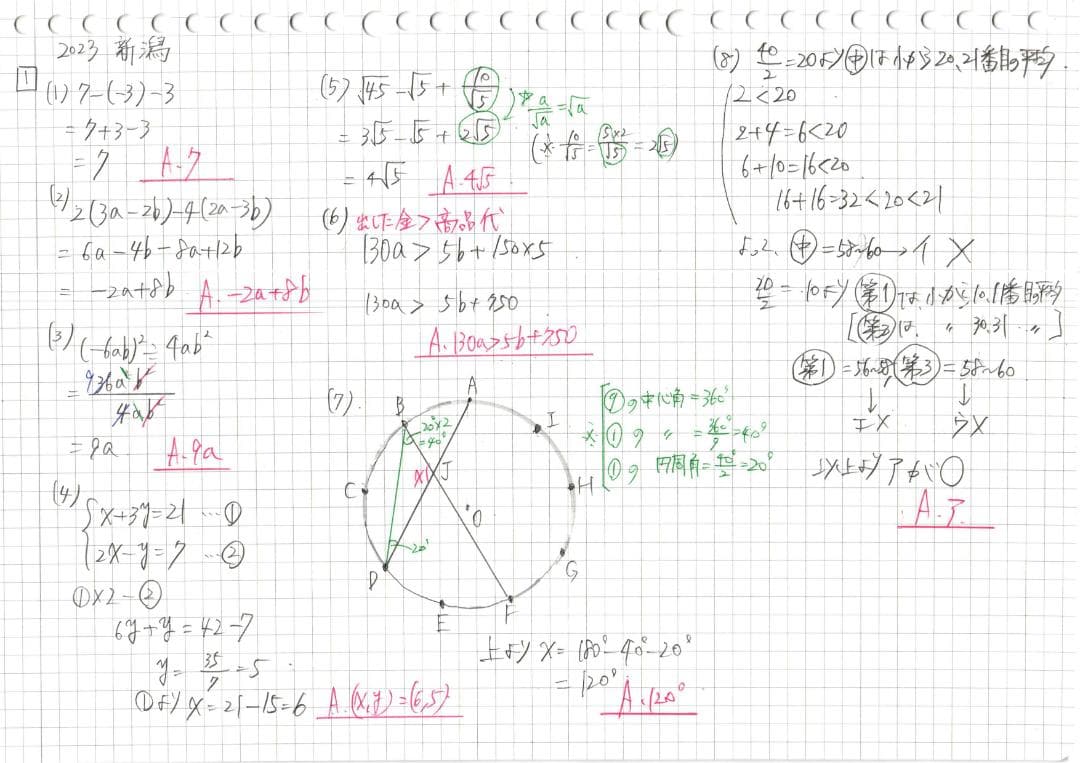 2023 新潟
1
(1) 7-(-3)-3
= 7+3-3
= 7 A.7
(2) 2(3a-2b)-4(2a-3b)
= 6a-4b-8a+12b
= -2a+8b A. -2a+8b
(3) (-6ab)²÷4ab²
= 9 36a²b²/4ab²
= 9a A.9a
(4)
{x+3y=21 …①
{2x-y=7 …②
①×2-②
6y+y=42-7
y=35/7=5
①より x=21-15=6 A.(x,y)=(6,5)
(5) √45-√5+10/√5
☆ a/√a=√a
= 3√5-√5+2√5
(※ 10/√5=5×2/√5=2√5)
= 4√5 A.4√5
(6) 出した金>商品代
130a > 5b+150×5
130a > 5b+750
A.130a>5b+750
(7)
A
B
C
D
E
F
G
H
I
J
O
x
20°×2
=40°
20°
※
⑨の中心角=360°
①の 〃 =360°/9=40°
①の 円周角=40°/2=20°
上より x=180°-40°-20°
=120°
A.120°
(8) 40/2=20より㊥は小から20,21番目の平均.
2<20
2+4=6<20
6+10=16<20
16+16=32<20<21
よって、㊥=58~60→イ X
20/2=10より(第1)は、小から10,11番目の平均
[(第3)は、 〃 30,31 〃]
(第1)=56~58 (第3)=58~60
↓ ↓
エX ウX
以上よりアが○
A.ア